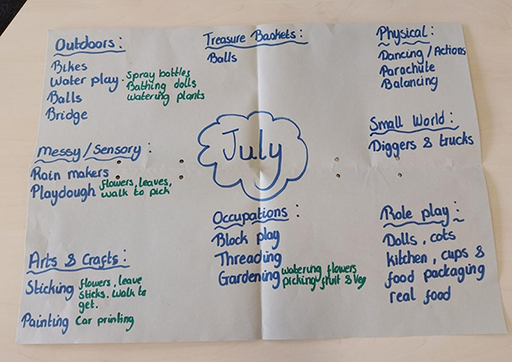 Outdoors :
Bikes
Water play . Spray bottles
Bathing dolls
watering plants
Balls
Bridge
Treasure Baskets :
Balls
Physical :
Dancing / Actions
Parachute
Balancing
Messy / Sensory :
Rain makers
Playdough flowers, leaves,
walk to pick
July
Small World :
Diggers & trucks
Arts & Crafts :
Sticking flowers, leave
sticks. walk to
get.
Painting Car printing
Occupations :
Block play
Threading
Gardening watering flowers
picking fruit & veg
Role play :
Dolls, cots
kitchen, cups &
food packaging
real food